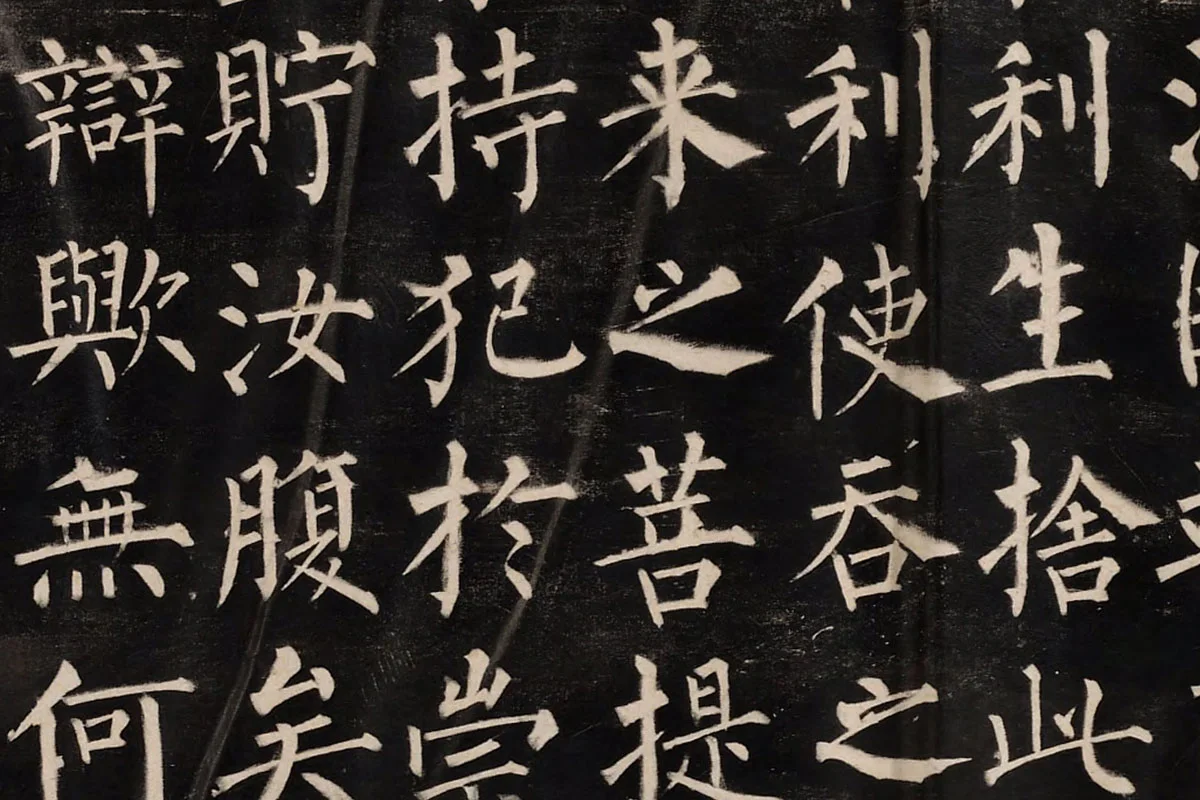 利生捨此
利使吞之
来之菩提
持犯於崇
貯汝腹矣
辯歟無何